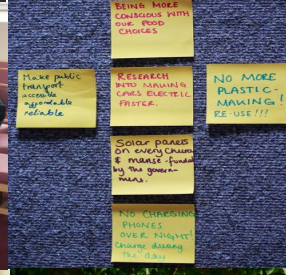 BEING MORE
CONSCIOUS WITH
OUR FOOD
CHOICES
Make public
transport
accessible
affordable
reliable
RESEARCH
INTO MAKING
CARS ELECTRIC
FASTER.
NO MORE
PLASTIC-
MAKING!
RE-USE!!!
Solar panels
on every Church
& manse-funded
by the govern-
ment.
NO CHARGING
PHONES
OVER NIGHT!
Charge during
the day